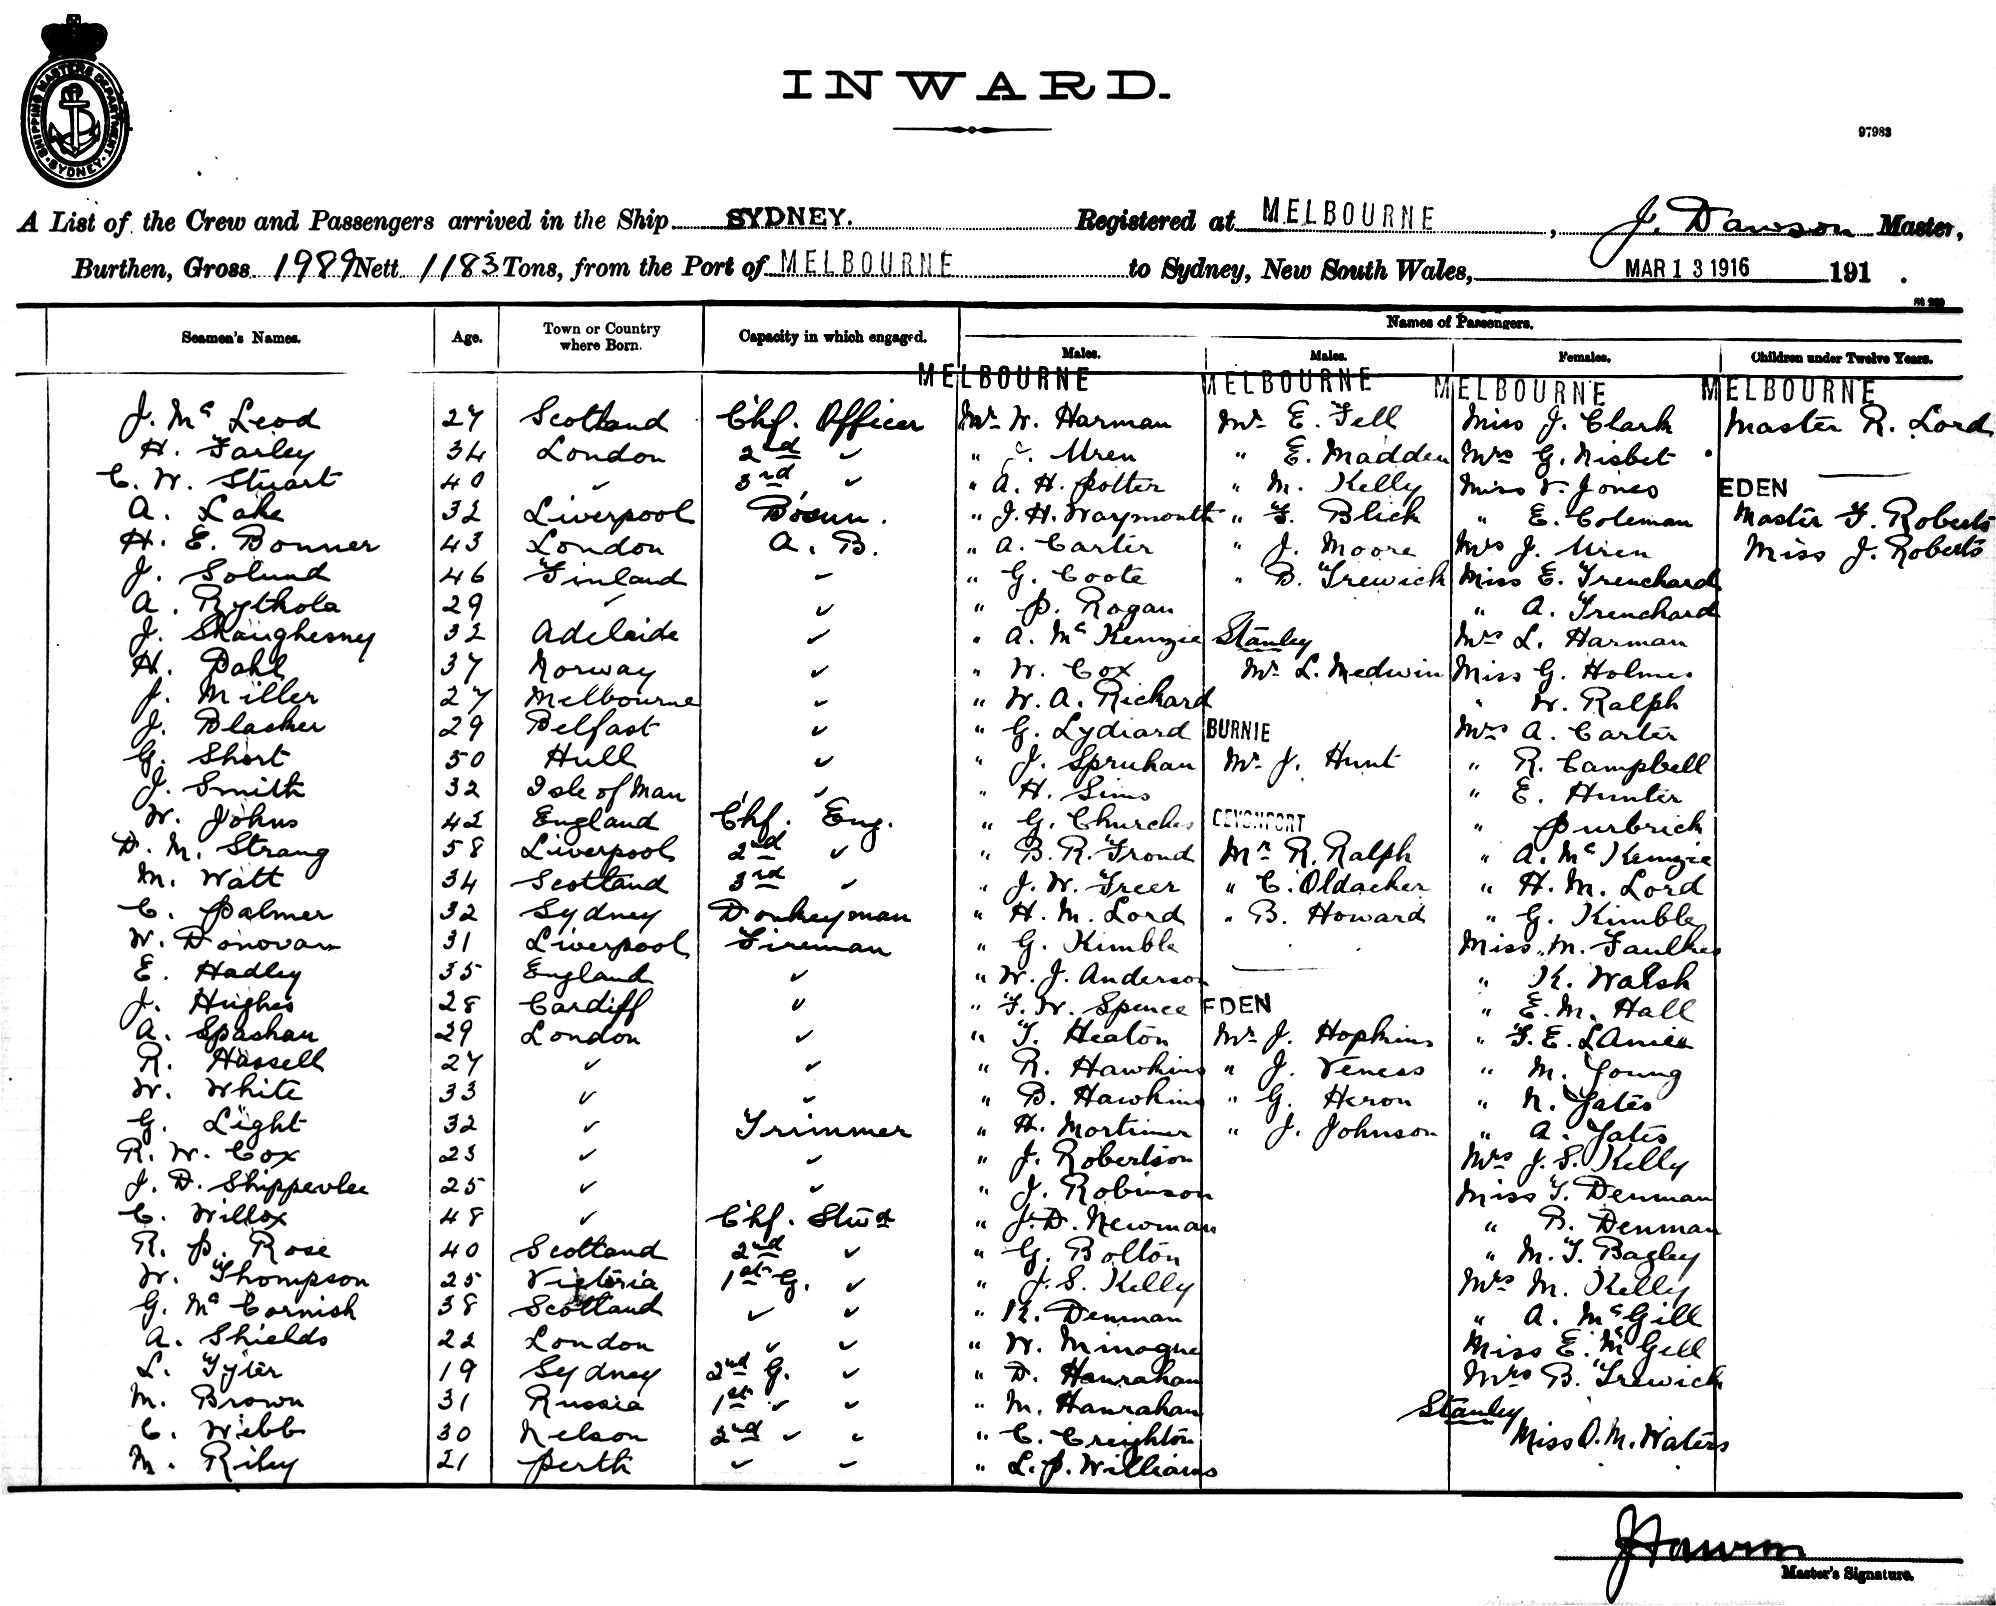 SHIPPING MASTERS DEPARTMENT
SYDNEY
INWARD.
97983
A List of the Crew and Passengers arrived in the Ship SYDNEY. Registered at MELBOURNE, J. Dawson Master,
Burthen, Gross 1989 Nett 1183 Tons, from the Port of MELBOURNE to Sydney, New South Wales, MAR 13 1916 191 .
Seamen's Names. Age. Town or Country where Born. Capacity in which engaged. Names of Passengers.
Males. Males. Females. Children under Twelve Years.
MELBOURNE MELBOURNE MELBOURNE MELBOURNE
J. Mc Leod 27 Scotland Chf. Officer Mr W. Harman Mr E. Fell Miss J. Clark Master R. Lord
H. Farley 34 London 2nd ✓ " J. Uren " E. Madden Mrs G. Nisbet
C. W. Stuart 40 ✓ 3rd ✓ " A. H. Potter " M. Kelly Miss V. Jones EDEN
A. Lake 32 Liverpool Bosun. " J. H. Waymouth " F. Blick " E. Coleman Master F. Roberts
H. E. Bonner 43 London A. B. " A. Carter " J. Moore Mrs J. Uren Miss J. Roberts
J. Solund 46 Finland ✓ " G. Coote " B. Trewick Miss E. Trenchard
A. Rythola 29 ✓ ✓ " P. Rogan " A. Trenchard
J. Shaughesney 32 Adelaide ✓ " A. Mc Kenzie Stanley Mrs L. Harman
H. Dahl 37 Norway ✓ " W. Cox Mr L. Medwin Miss G. Holmes
J. Miller 27 Melbourne ✓ " W. A. Richard " W. Ralph
J. Blacker 29 Belfast ✓ " G. Lydiard BURNIE Mrs A. Carter
G. Short 50 Hull ✓ " J. Spruhan Mr J. Hunt " R. Campbell
J. Smith 32 Isle of Man ✓ " H. Sims " E. Hunter
W. Johns 42 England Chf. Eng. " G. Churches DEVONPORT " Purbrick
D. M. Strang 58 Liverpool 2nd ✓ " B. R. Frond Mr R. Ralph " A. Mc Kenzie
M. Watt 34 Scotland 3rd ✓ " J. W. Freer " C. Oldacker " H. M. Lord
C. Palmer 32 Sydney Donkeyman " H. M. Lord " B. Howard " G. Kimble
W. Donovan 31 Liverpool Fireman " G. Kimble Miss M. Faulkes
E. Hadley 35 England ✓ " W. J. Anderson " K. Walsh
J. Hughes 28 Cardiff ✓ " F. W. Spence EDEN " E. M. Hall
A. Spashan 29 London ✓ " T. Heaton Mr J. Hopkins " F. E.
R. Hassell 27 ✓ ✓ " R. Hawkins " J. Veness " M. Young
W. White 33 ✓ ✓ " B. Hawkins " G. Heron " N. Yates
G. Light 32 ✓ Trimmer " H. Mortimer " J. Johnson " A. Yates
R. W. Cox 23 ✓ ✓ " J. Robertson Mrs J. S. Kelly
J. D. Shippevlee 25 ✓ ✓ " J. Robinson Miss T. Denman
C. Willox 48 ✓ Chf. Stwd " J. D. Newman " B. Denman
R. P. Rose 40 Scotland 2nd ✓ " G. Bolton " M. T. Bagley
W. Thompson 25 Victoria 1st G. ✓ " J. S. Kelly Mrs M. Kelly
G. Mc Cornish 38 Scotland ✓ ✓ " K. Denman " A. McGill
A. Shields 22 London ✓ ✓ " W. Minogue Miss E. McGill
L. Tyler 19 Sydney 2nd G. ✓ " D. Hanrahan Mrs B. Trewick
M. Brown 31 Russia 1st ✓ ✓ " M. Hanrahan Stanley
C. Webb 30 Nelson 2nd ✓ ✓ " C. Creighton Miss O. M. Waters
M. Riley 21 Perth ✓ ✓ " L. P. Williams
J Dawson
Master's Signature.